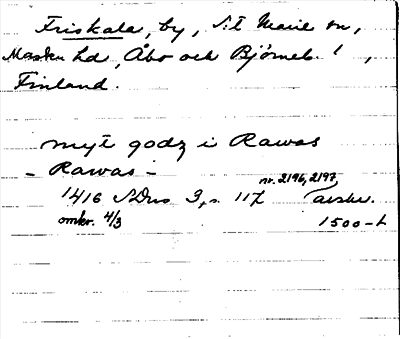 Friskala, by, S:t Marie sn,
Masku hd, Åbo och Björneb. l,
Finland.
myt godz i Rawas
- Rawas -
nr. 2196, 2197,
1416 SDns 3, s. 117 avskr.
omkr. 4/3 1500-t